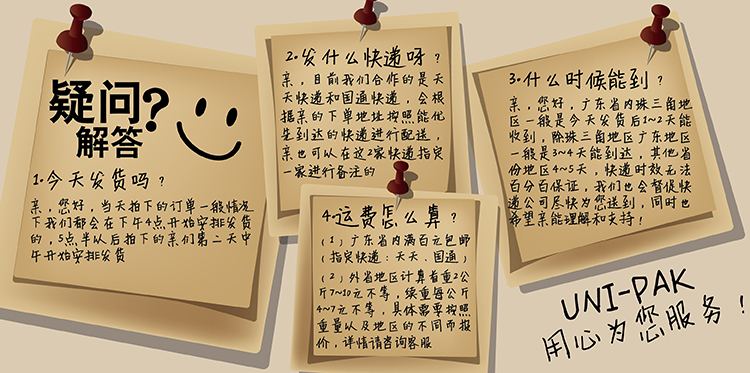 疑问?
解答
1.今天发货吗？
亲，您好，当天拍下的订单一般情况
下我们都会在下午4点开始安排发货
的，5点半以后拍下的亲们第二天中
午开始安排发货
2.发什么快递呀？
亲，目前我们合作的是天
天快递和国通快递，会根
据亲的下单地址按照能优
先到达的快递进行配送，
亲也可以在这2家快递指定
一家进行备注的
3.什么时候能到？
亲，您好，广东省内珠三角地
区一般是今天发货后1~2天能
收到，除珠三角地区广东地区
一般是3~4天能到达，其他省
份地区4~5天，快递时效无法
百分百保证，我们也会督促快
递公司尽快为您送到，同时也
希望亲能理解和支持！
4.运费怎么算？
（1）广东省内满百元包邮
（指定快递：天天、国通）
（2）外省地区计算首重2公
斤7~10元不等，续重每公斤
4~7元不等，具体需要按照
重量以及地区的不同而报
价，详情请咨询客服
UNI-PAK
用心为您服务！